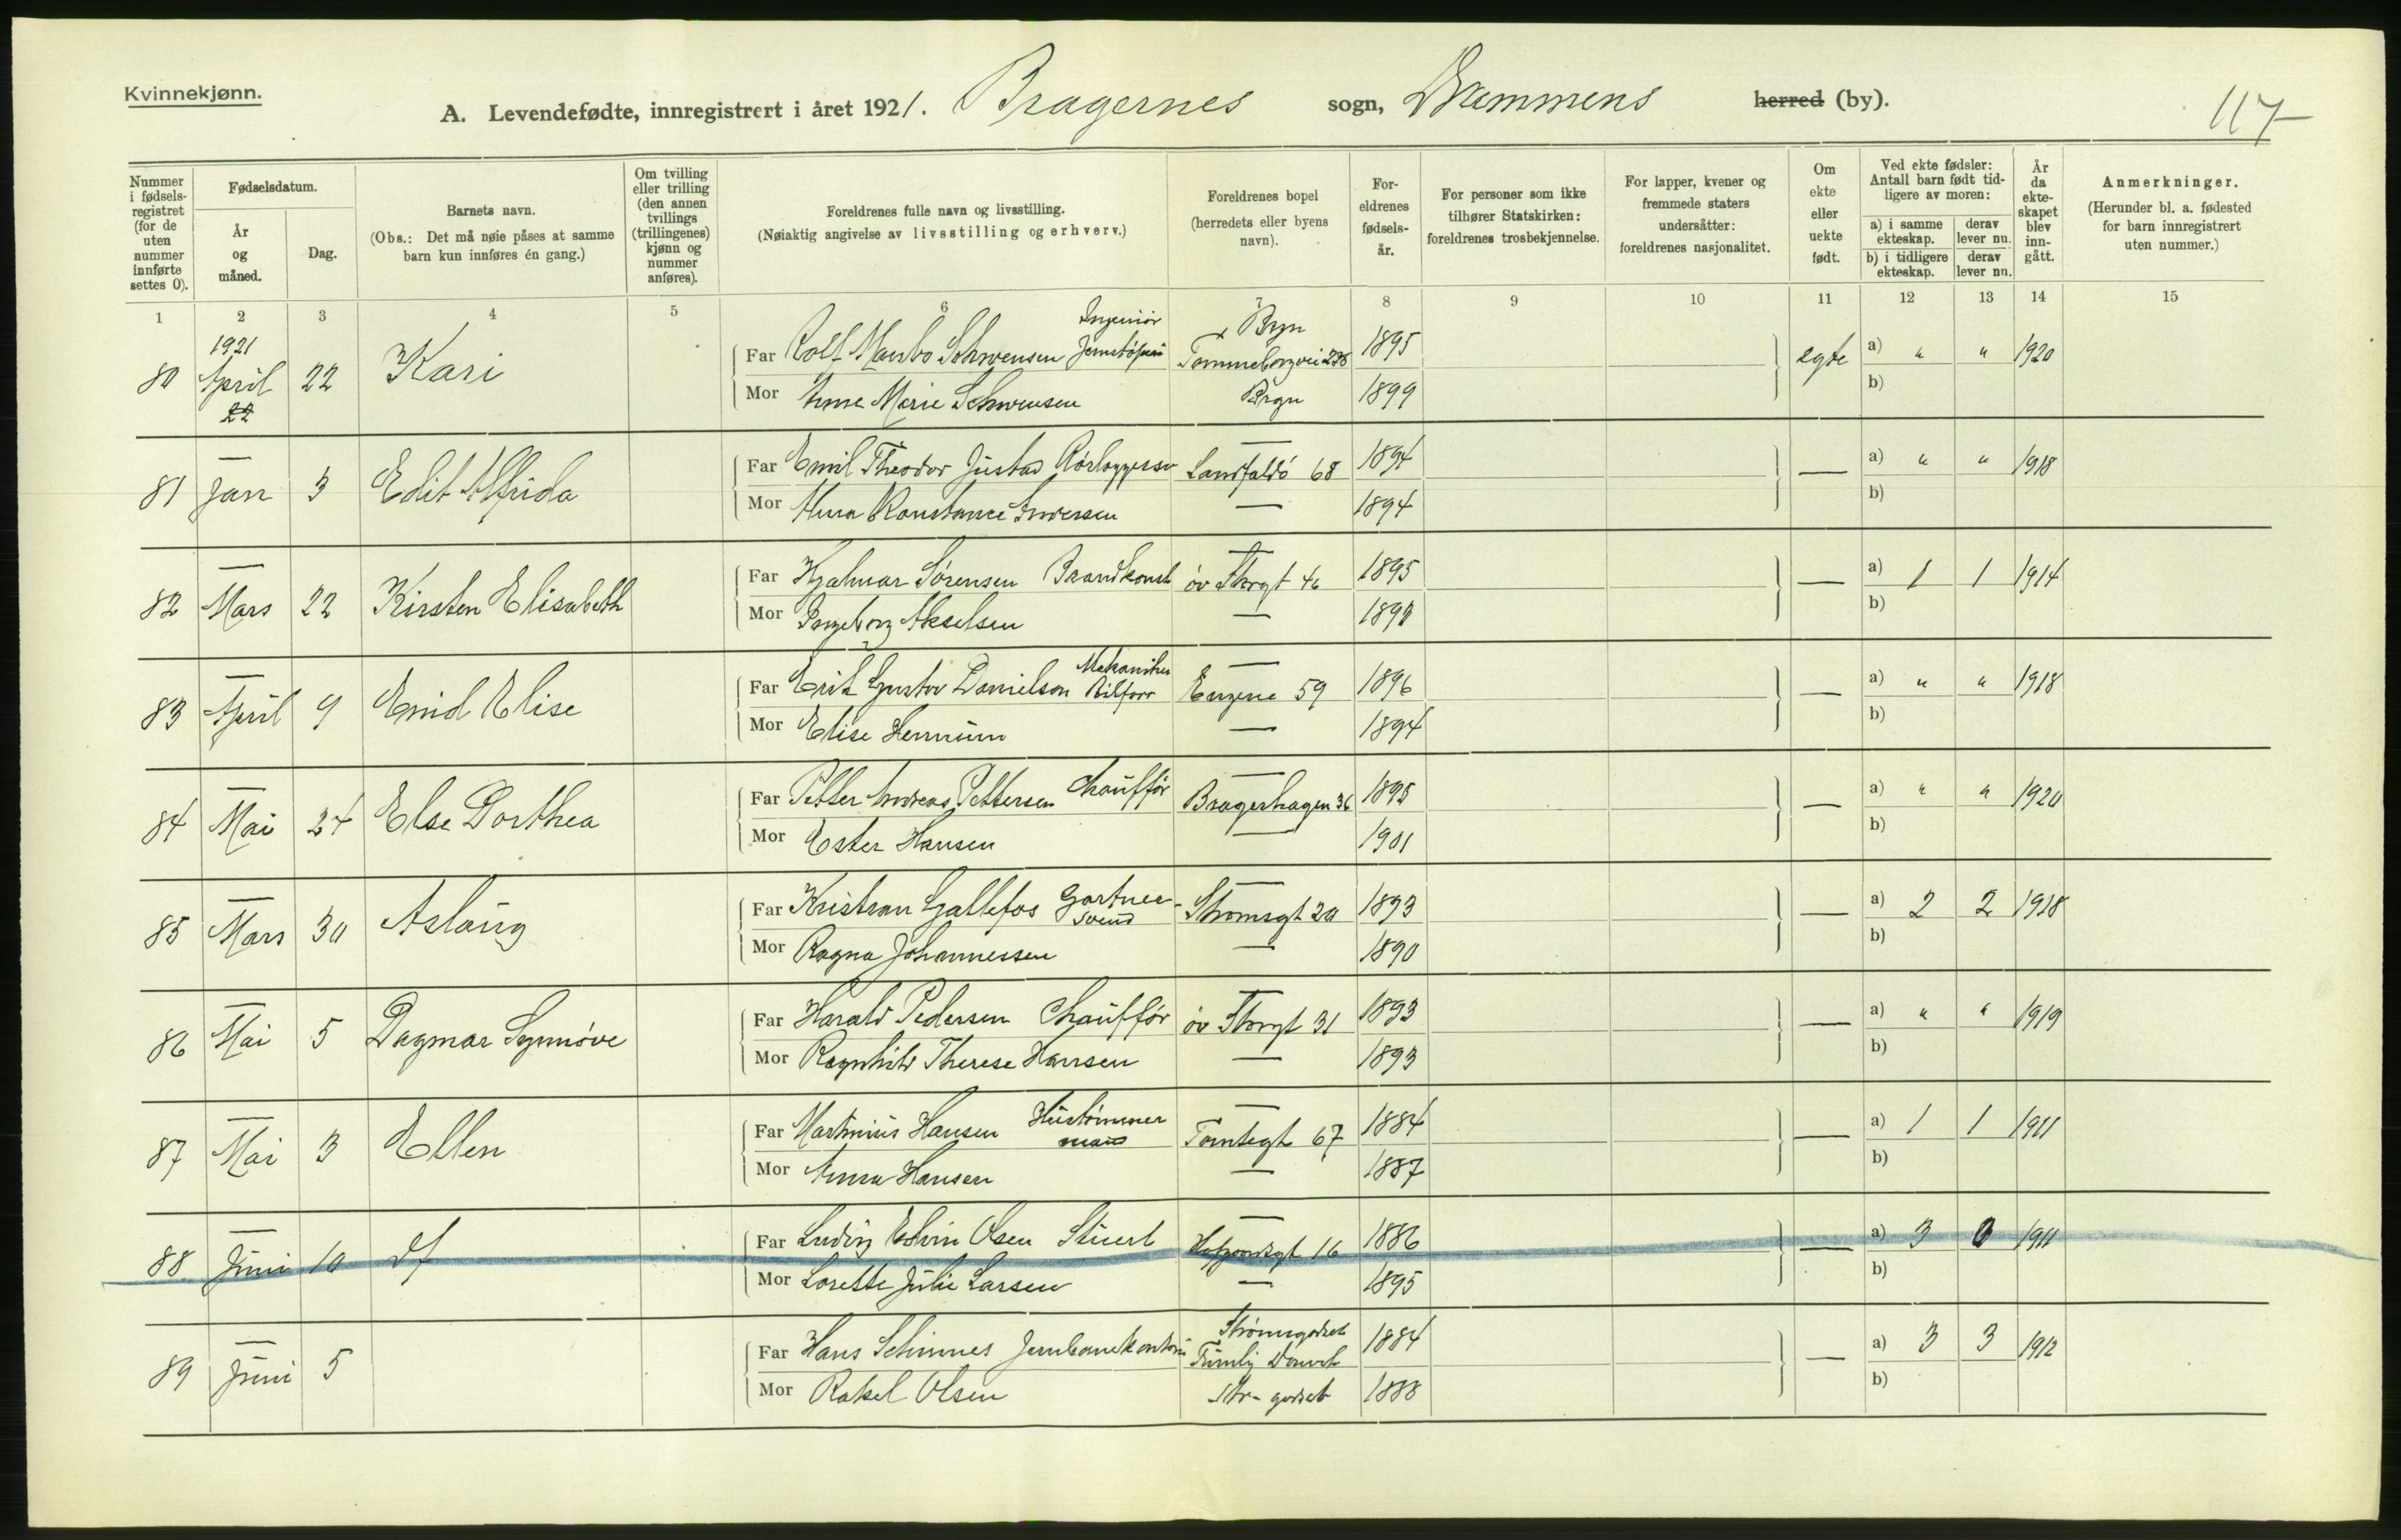 Kvinnekjønn.
A. Levendefødte, innregistrert i året 1921. Bragernes sogn, Drammens herred (by).
117
Nummer i fødsels-registret (for de uten nummer innførte settes 0).
Fødselsdatum.
År og måned.
Dag.
Barnets navn.
(Obs.: Det må nøie påses at samme barn kun innføres én gang.)
Om tvilling eller trilling (den annen tvillings (trillingenes) kjønn og nummer anføres).
Foreldrenes fulle navn og livsstilling.
(Nøiaktig angivelse av livsstilling og erhverv.)
Foreldrenes bopel
(herredets eller byens navn).
For-eldrenes fødsels-år.
For personer som ikke tilhører Statskirken: foreldrenes trosbekjennelse.
For lapper, kvener og fremmede staters undersåtter: foreldrenes nasjonalitet.
Om ekte eller uekte født.
Ved ekte fødsler: Antall barn født tid-ligere av moren:
a) i samme ekteskap. derav lever nu.
b) i tidligere ekteskap. derav lever nu.
År da ekte-skapet blev inn-gått.
Anmerkninger.
(Herunder bl. a. fødested for barn innregistrert uten nummer.)
1 2 3 4 5 6 7 8 9 10 11 12 13 14 15
1921 Ingeniør Bryn
80 April 22 Kari Far Rolf Schwensen 1895 egte a) " " 1920
22 Mor Anna Marie Schwensen 1899 b)
81 Jan 3 Edit Alfrida Far Emil Theodor Landfaldö 68 1894 — a) " " 1918
Mor Anna Konstance Iversen — 1894 b)
82 Mars 22 Kirsten Elisabeth Far Hjalmar Sørensen öv Storgt 1895 — a) 1 1 1914
Mor Ingeborg Akselsen — b)
Mekaniker
83 April 9 Enid Elise Far Erik Gustav Danielson Engene 59 1896 — a) " " 1918
Mor Elise Hernum — 1894 b)
84 Mai 24 Else Dorthea Far Petter Andreas Pettersen Chauffør Bragerhagen 36 1895 — a) " " 1920
Mor Ester Hansen — 1901 b)
85 Mars 30 Aslaug Far Kristian Gallefos Gartner- svend Strømsgt 20 1893 — a) 2 2 1918
Mor Ragna Johannessen — 1890 b)
86 Mai 5 Dagmar Synnøve Far Harald Pedersen Chauffør öv Storgt 31 1893 — a) " " 1919
Mor Ragnhild Therese Hansen — 1893 b)
87 Mai 3 Ellen Far Martinius Hansen Hustømmer mand Tomtegt 67 1884 — a) 1 1 1911
Mor Anna Hansen — 1887 b)
88 Juni 10 df Far Ludvig Edvin Olsen Stuert 16 1886 — a) 3 0 1911
Mor Lorette Julie Larsen — 1895 b)
Strømsgodset
89 Juni 5 Far Hans Schinnes Jernbanekontorist 1884 — a) 3 3 1912
Mor Rakel Olsen Str- godset 1888 b)